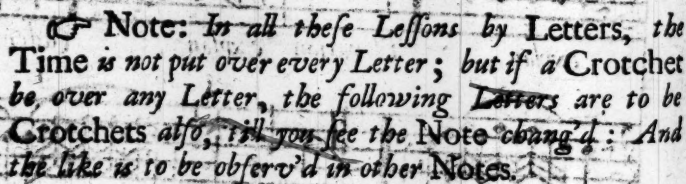 ☞ Note: In all theſe Leſſons by Letters, the
Time is not put over every Letter; but if a Crotchet
be over any Letter, the following Letters are to be
Crotchets alſo, till you ſee the Note chang'd: And
the like is to be obſerv'd in other Notes.